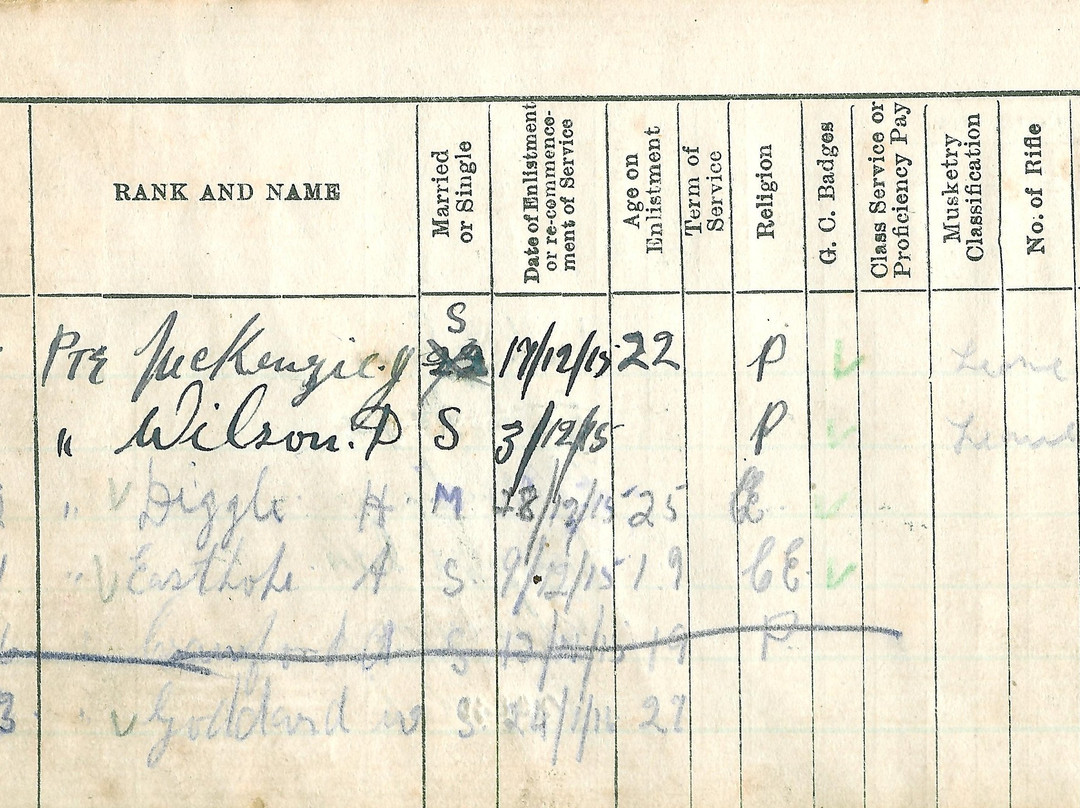 RANK AND NAME Married or Single Date of Enlistment or re-commence-ment of Service Age on Enlistment Term of Service Religion G. C. Badges Class Service or Proficiency Pay Musketry Classification No. of Rifle
S
Pte McKenzie. J 17/12/15 22 P
" Wilson. D S 3/12/15 P
" Diggle H M 28/12/15 25 CE
" Easthope A S 9/12/15 19 CE
A S 19 P
3 " Goddard W S 24/1/16 27